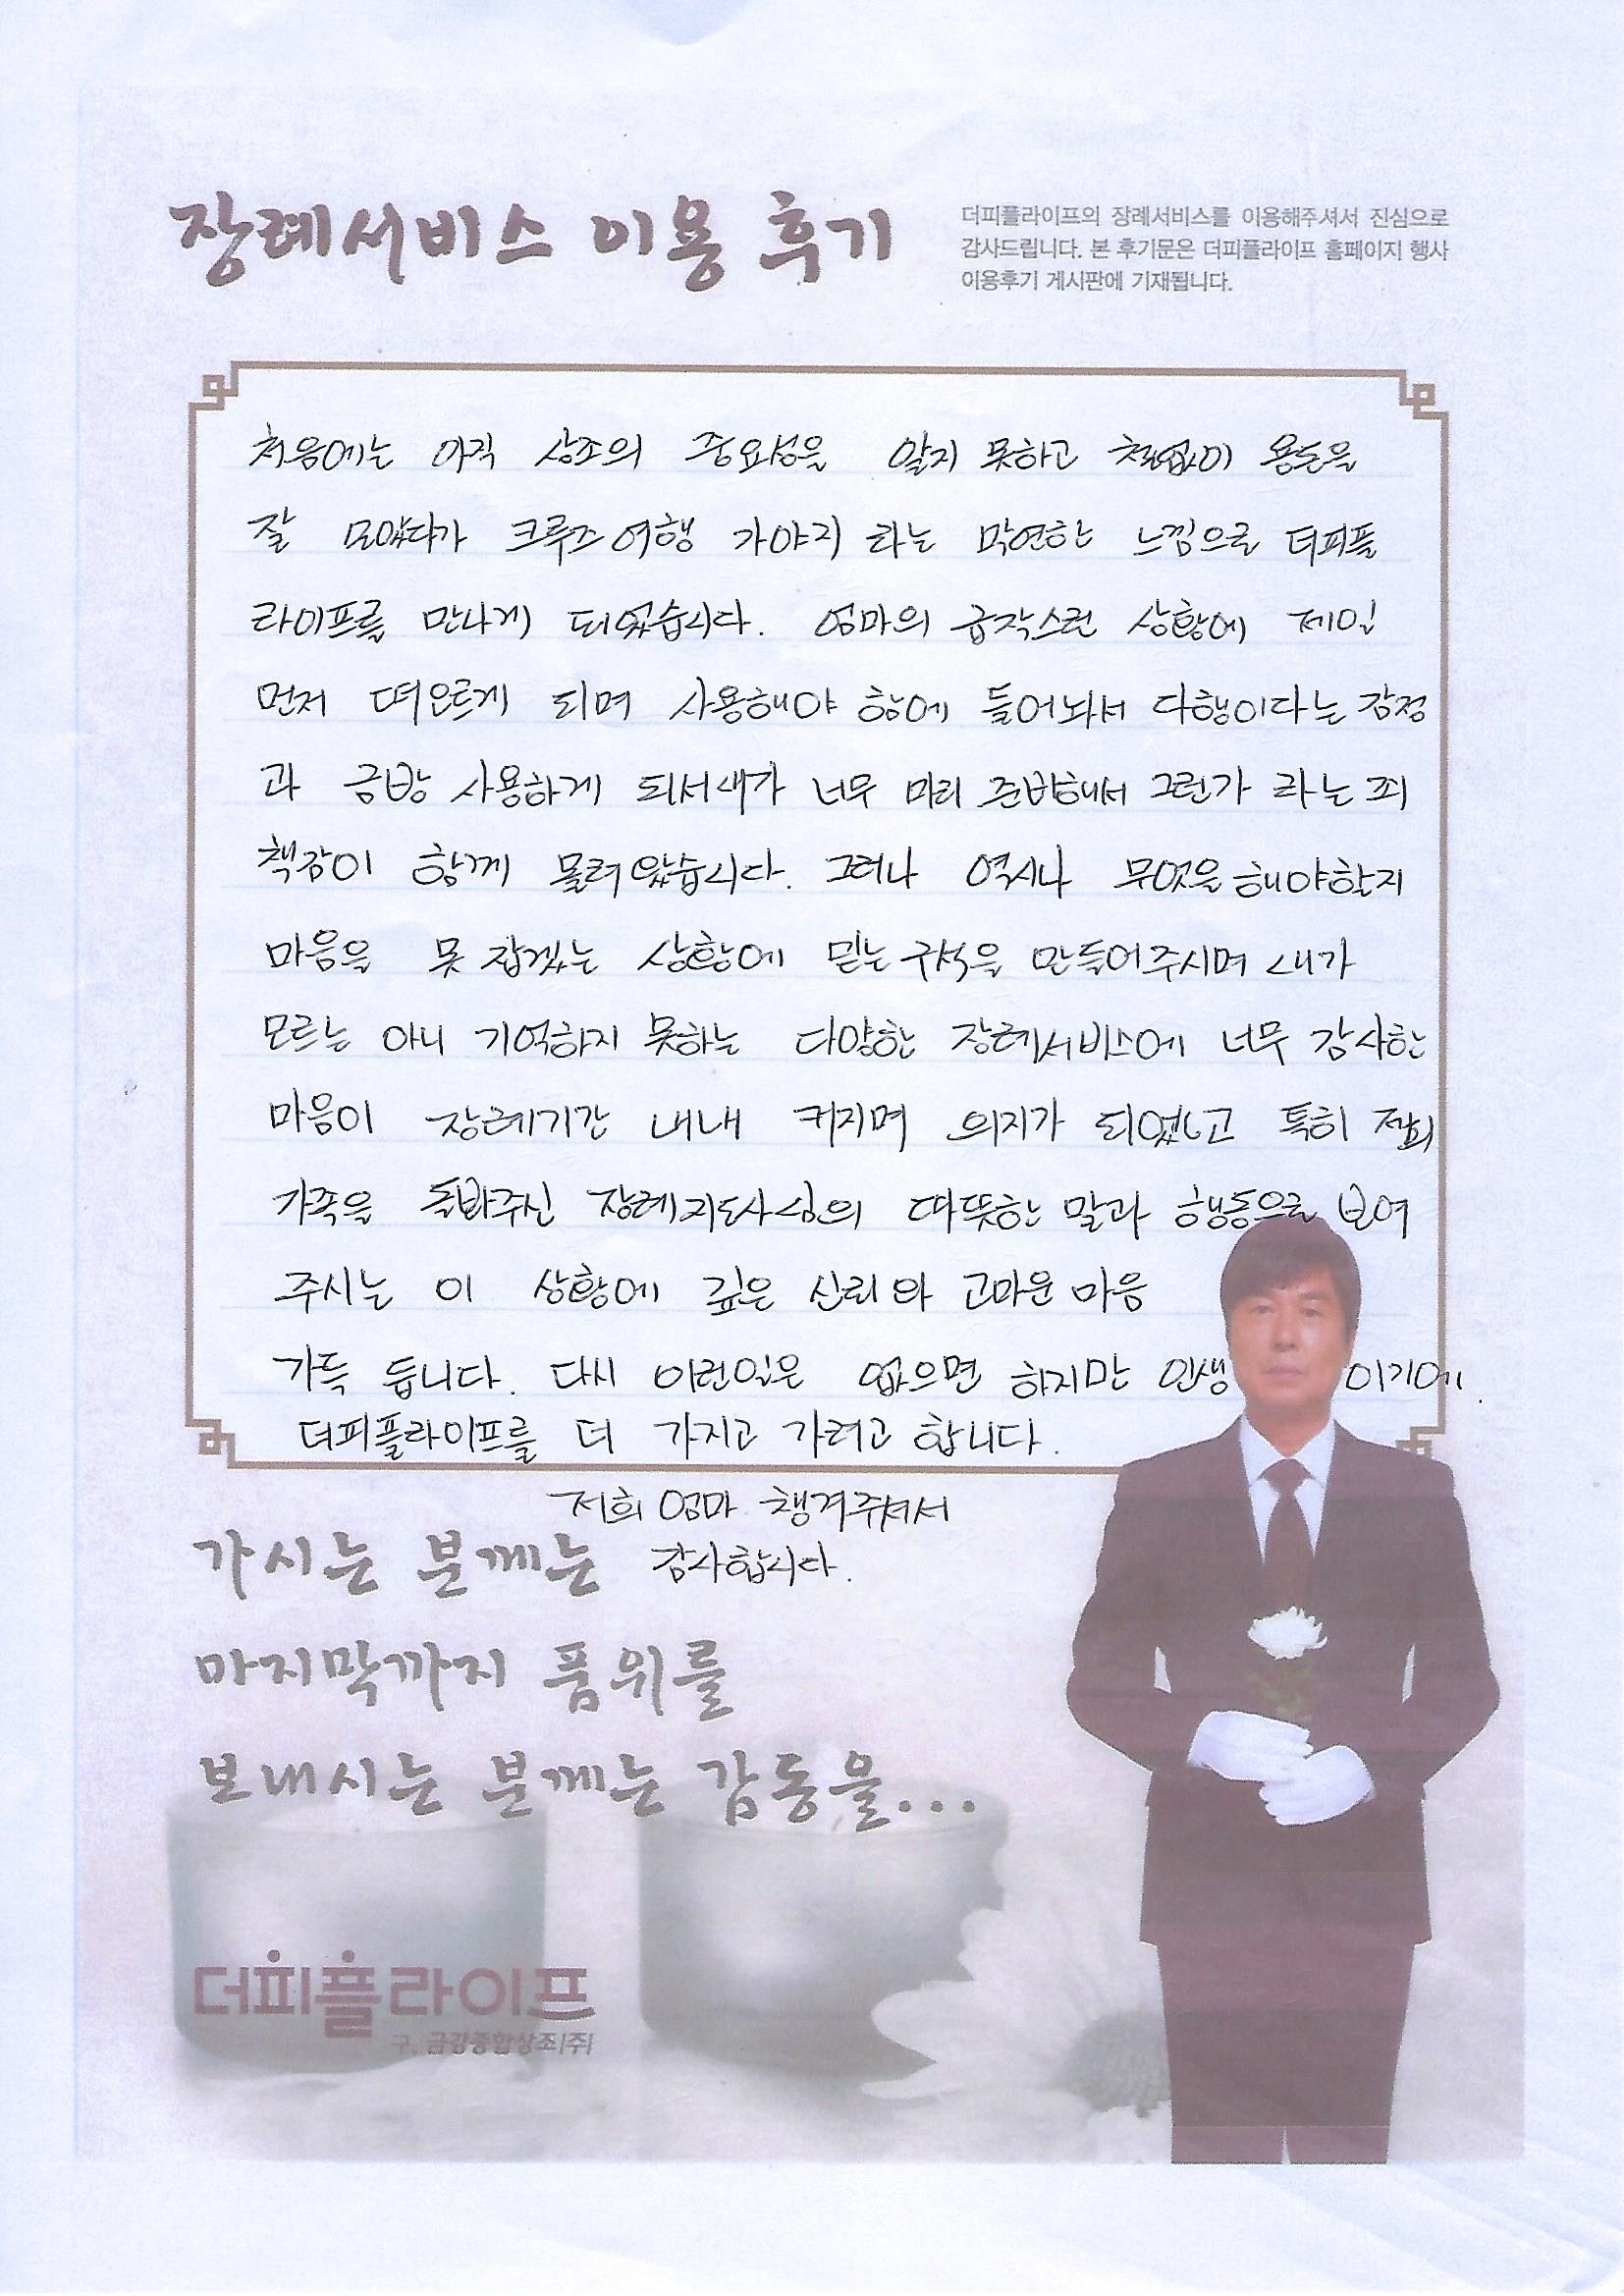 장례서비스 이용 후기
더피플라이프의 장례서비스를 이용해주셔서 진심으로
감사드립니다. 본 후기문은 더피플라이프 홈페이지 행사
이용후기 게시판에 기재됩니다.
처음에는 아직 상조의 중요성을 알지 못하고 철없이 용돈을
잘 모았다가 크루즈여행 가야지 라는 막연한 느낌으로 더피플
라이프를 만나게 되었습니다. 엄마의 급작스런 상황에 제일
먼저 떠오르게 되며 사용해야 함에 들어놔서 다행이다는 감정
과 금방 사용하게 되서 내가 너무 미리 준비해서 그런가 라는 죄
책감이 함께 몰려왔습니다. 그러나 역시나 무엇을 해야할지
마음을 못 잡겠는 상황에 믿는 구석을 만들어주시며 내가
모르는 아니 기억하지 못하는 다양한 장례서비스에 너무 감사한
마음이 장례기간 내내 커지며 의지가 되었고 특히 저희
가족을 돌봐주신 장례지도사님의 따뜻한 말과 행동으로 보여
주시는 이 상황에 깊은 신뢰와 고마운 마음
가득 듭니다. 다시 이런일은 없으면 하지만 인생 이기에
더피플라이프를 더 가지고 가려고 합니다.
저희 엄마 챙겨주셔서
감사합니다.
가시는 분께는
마지막까지 품위를
보내시는 분께는 감동을...
더피플라이프
구. 금강종합상조(주)